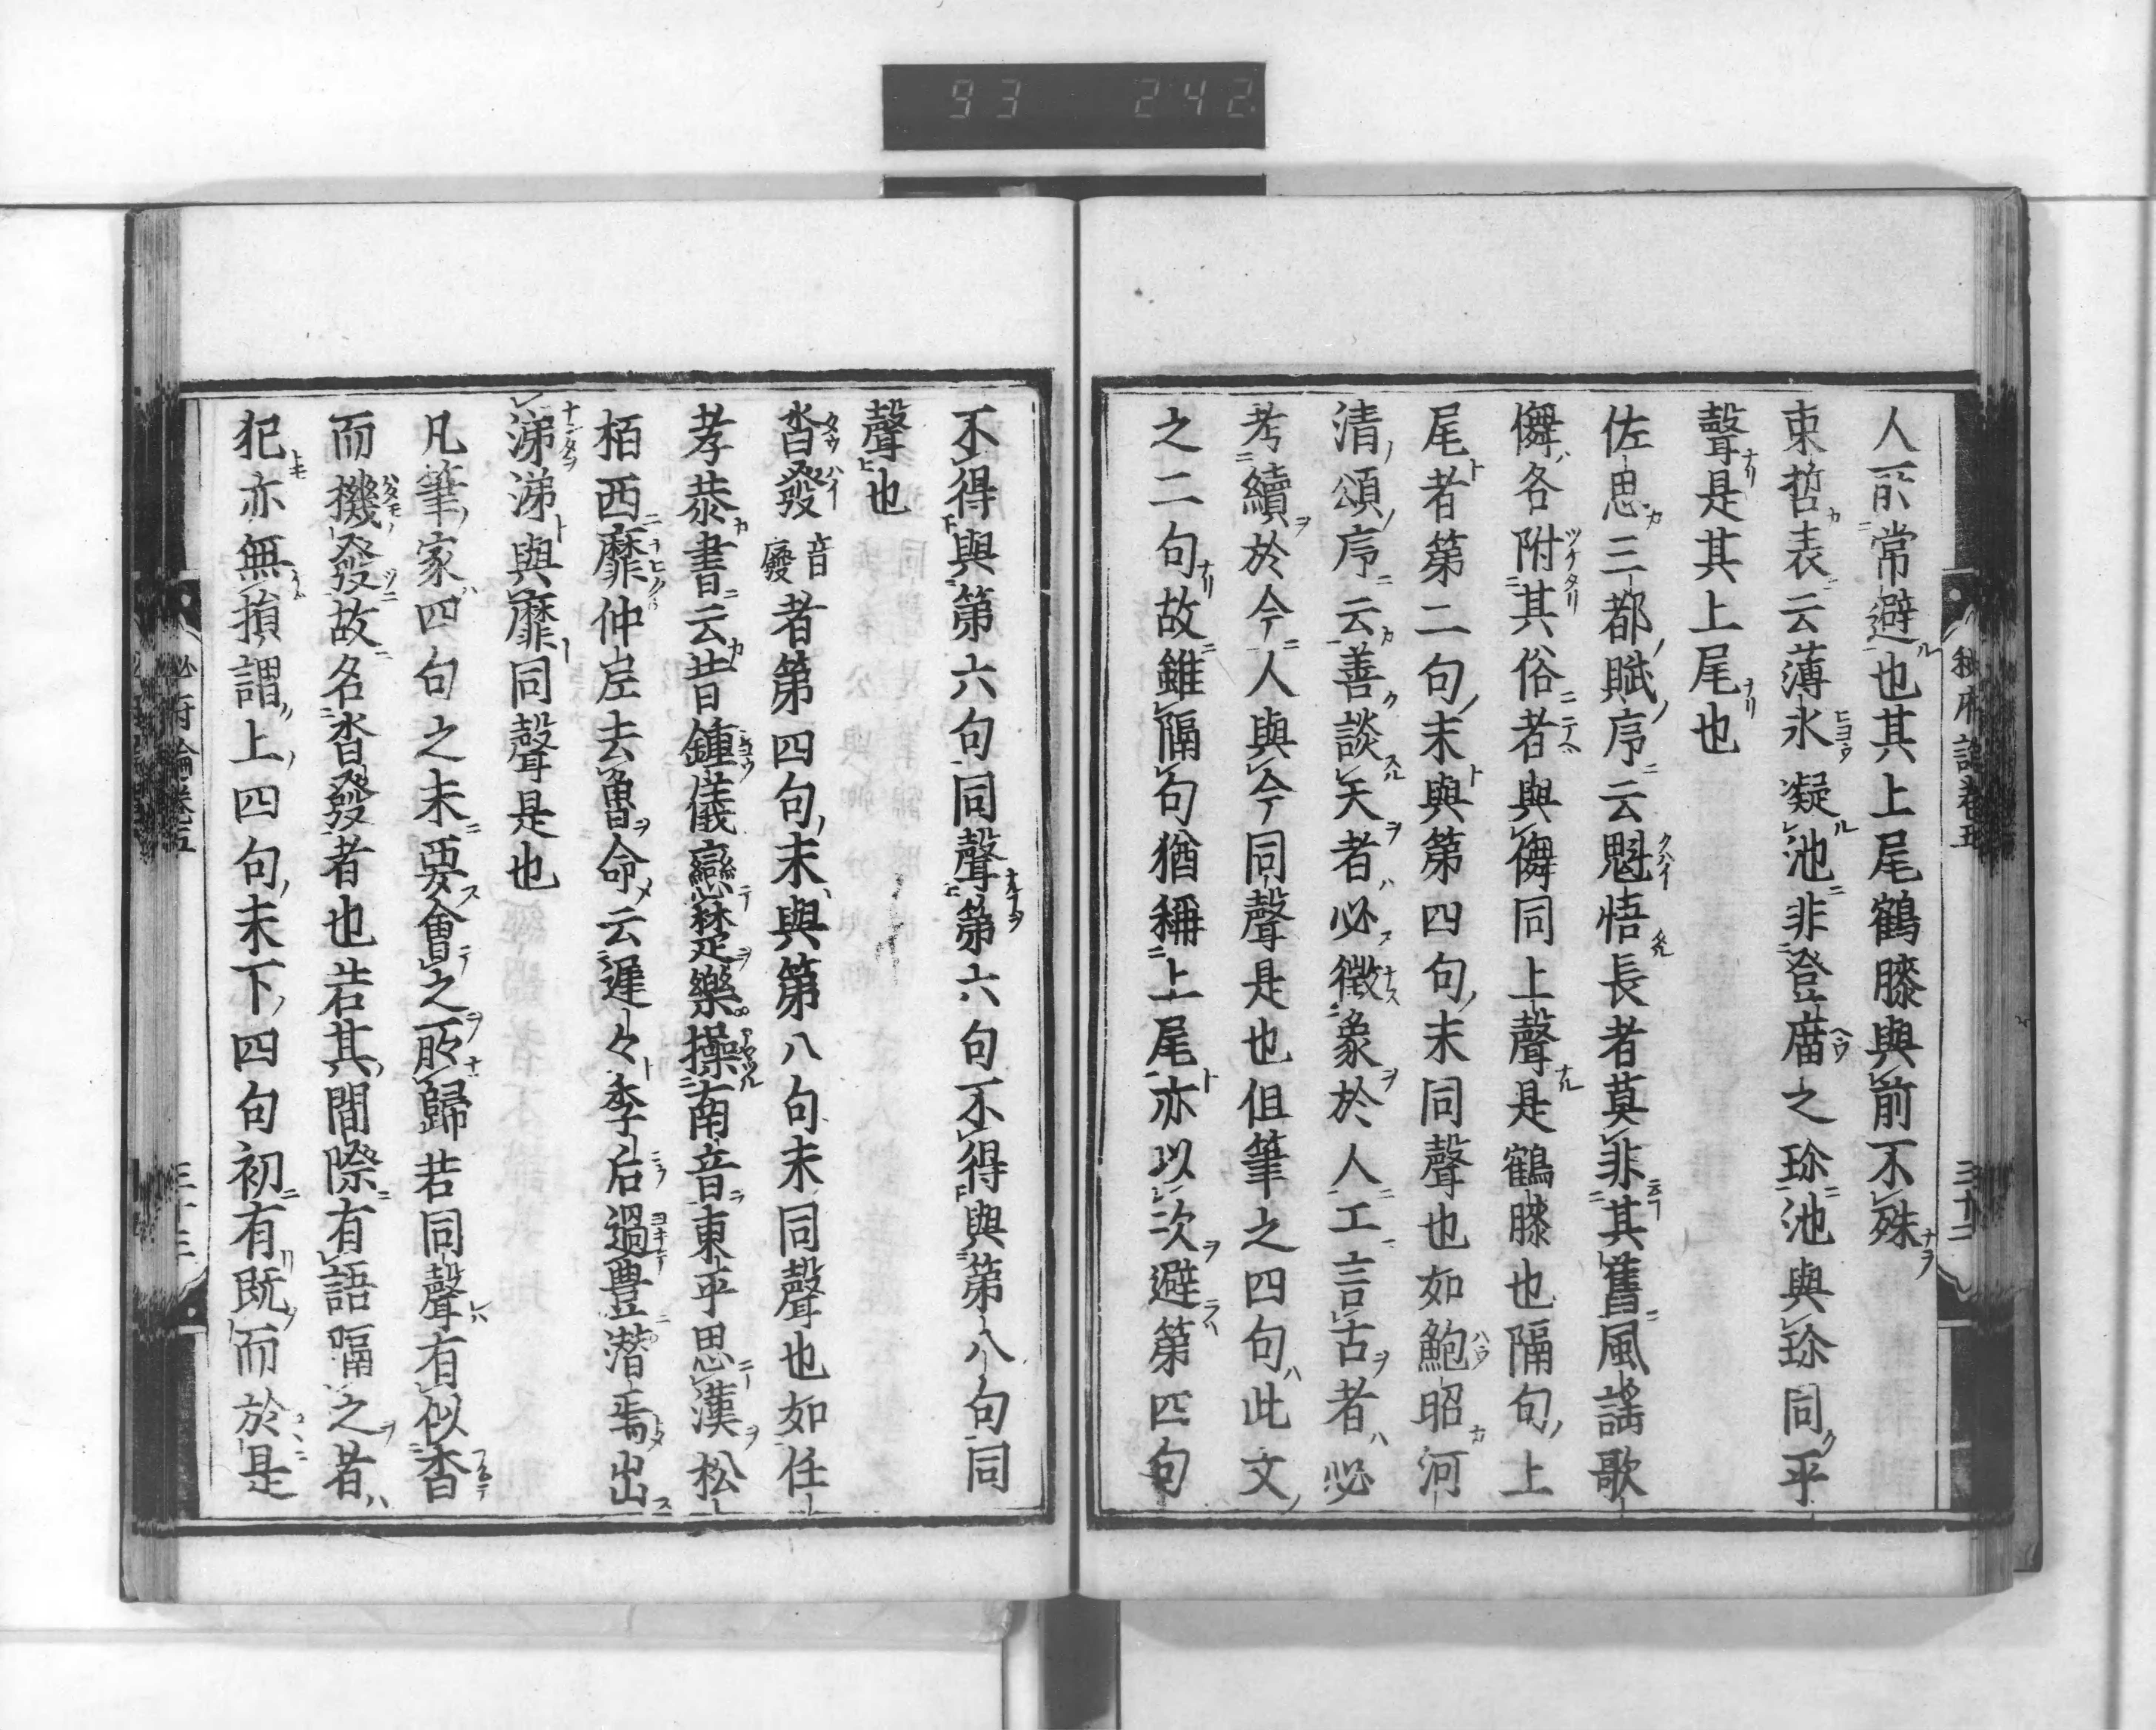 93 242
人所常避也其上尾鶴膝與前不殊
束晢表云薄氷凝池非登庿之珎池與珎同平
聲是其上尾也
佐思三都賦序云魁悟長者莫非其舊風謡歌
儛各附其俗者與儛同上聲是鶴膝也隔句上
尾者第二句末與第四句末同聲也如鮑昭河
清頌序云善談天者必徴象於人工言古者必
考續於今人與今同聲是也但筆之四句此文
之二句故雖隔句猶稱上尾亦以次避第四句
不得與第六句同聲第六句不得與第八句同
聲也
沓發音廢者第四句末與第八句末同聲也如任
孝恭書云昔鍾儀戀楚樂操南音東平思漢松
栢西靡仲㞐去魯命云遲々季后過豊潜焉出
涕涕與靡同聲是也
凡筆家四句之末要會之所歸若同聲有似沓
而機發故名沓發者也若其間際有語隔之者
犯亦無損謂上四句末下四句初有既而於是